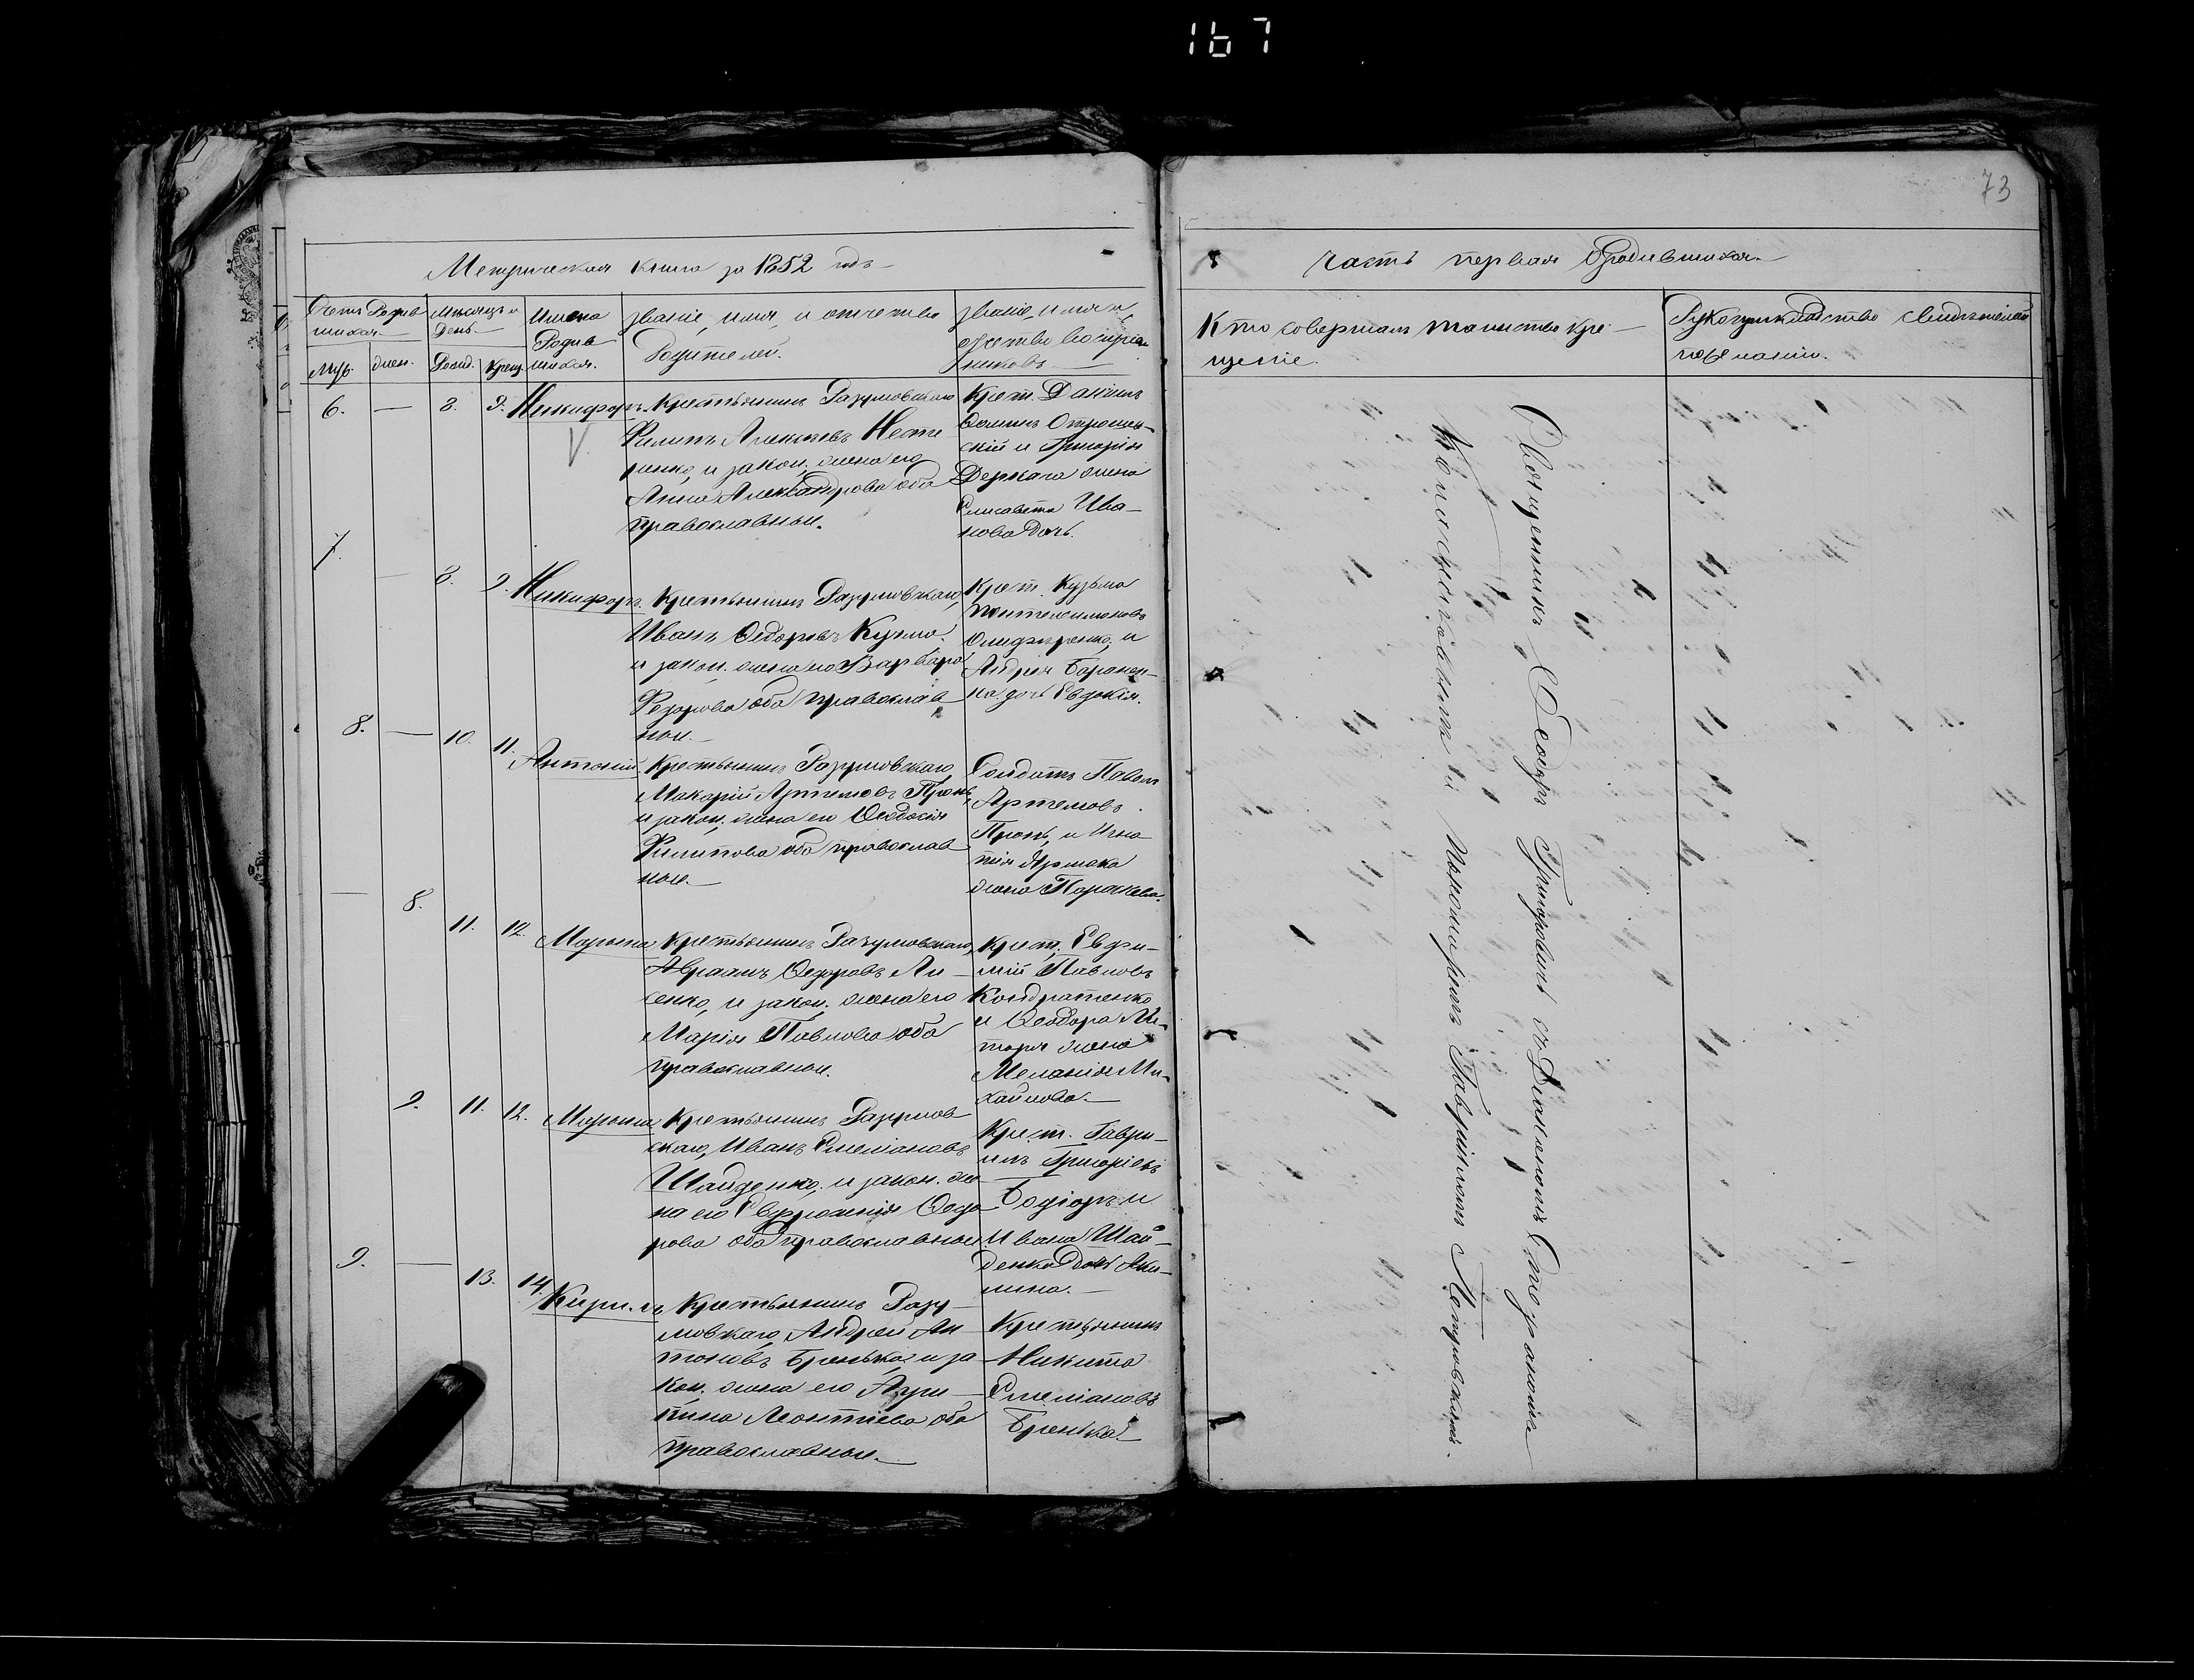 167
73
Метрическая книга за 1852 годъ
Счетъ Родив
шихся.
Муж.
жен.
Мѣсяцъ и
День.
Рожд.
Крещ.
Имена
Родив
шихся.
Званіе, имя, и отчество
Родителей.
Званіе, имя и
отчество воспріем
никовъ
6. — 8. 9. Никифоръ.
Крестьянинъ Разумовскаго
Филипъ Алексѣевъ Несте
ренко, и закон. жена его
Анна Александрова оба
православныи.
Крест. Данiилъ
скій и Григорія
Деркача жена
Елисавета Ива-
нова дочь.
7. — 8. 9. Никифоръ.
Крестьянинъ Разумовскаго,
Иванъ Ѳедоровъ Кузма.
и закон. жена его Варвара
оба православ
ныи.
Крест. Кузьма
Пантелеимоновъ
Олиференко, и
Андрея Баранен-
ка дочь Евдокія.
8. — 10. 11. Антоній.
Крестьянинъ Разумовскаго
Макарій Артемовъ Пронь,
и закон. жена его Ѳеодосія
Филипова оба православ
ныи.
Солдатъ Павелъ
Артемовъ
Пронь, и Игна-
тія Ярмака
жена Параскева.
— 8. 11. 12. Марина
Крестьянинъ Разумовскаго,
Авраамъ Ѳедоровъ Ли-
сенко, и закон. жена его
Марія Павлова оба
православныи.
Крест. Евфи-
мій Павловъ
Кондратенко
и Ѳеодора Ли-
таря жена
Меланія Ми-
хайлова.
9. 11. 12. Марина
Крестьянинъ Разумов
скаго, Иванъ Емеліановъ
Шайденко, и закон. же
на его Евфросинія Ѳедо
рова оба православныи
Крест. Гаври-
илъ Григоріевъ
и
Ивана Шай-
денка дочь Аку-
лина.
9. — 13. 14. Кирилъ
Крестьянинъ Разу-
мовскаго, Андрей Ан
тоновъ Бренька, и за
кон. жена его Агри-
пина Леонтіева оба
православныи.
Крестьянинъ
Никита
Емеліановъ
Бренька.
часть первая о родившихся.
Кто совершалъ таинство кре-
щеніе.
Рукоприкладство свидѣтелей
по желанію.
Священникъ Ѳеодоръ Григоровичъ съ Діакономъ
и Пономаремъ Гавріиломъ Петровскимъ.